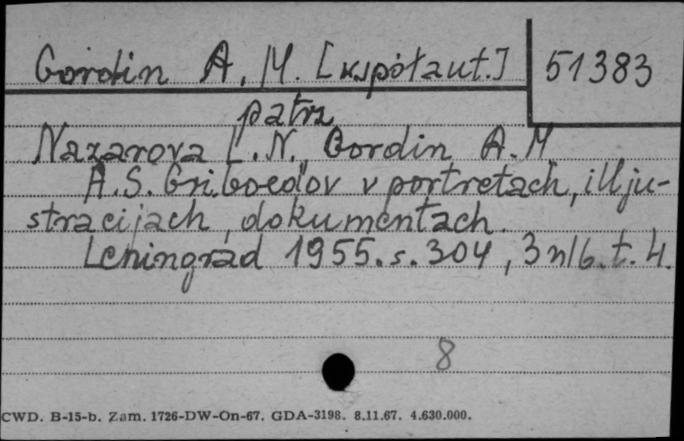 Gordin A. M. [współaut.] 51383
patrz
Nazarova L. N., Gordin A. M
A. S. Griboedov v portretach, illju-
stracijach, dokumentach.
Leningrad 1955. s. 304, 3 nlb. t. 4.
8
CWD. B-15-b. Zam. 1726-DW-On-67. GDA-3198. 8.11.67. 4.630.000.